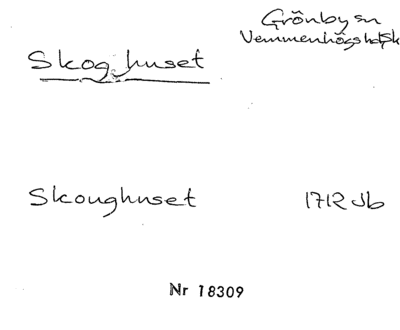 Grönby sn
Vemmenhögs hd Sk
Skoghuset
Skoughuset 1712 Jb
Nr 18309